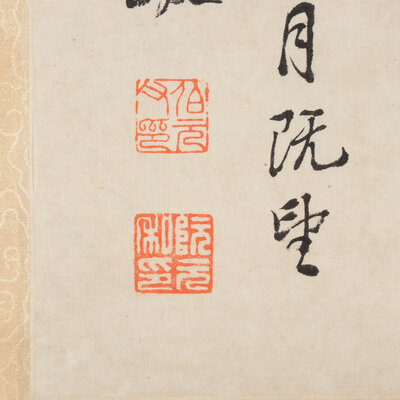 月既望
伯元父印
阮元私印